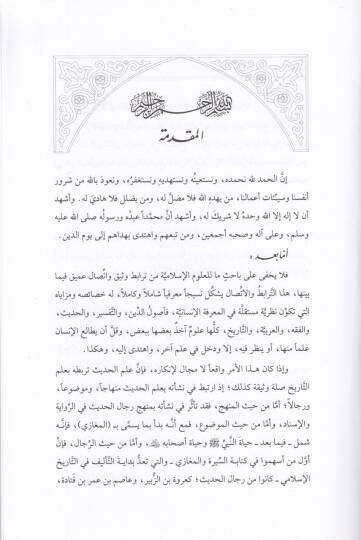 بسم الله الرحمن الرحيم
المقدمة
إنَّ الحمد لله نحمده، ونستعينُه ونستهديهِ ونستغفرُه، ونعوذ بالله من شرور
أنفسنا وسيئات أعمالنا، من يهدِهِ الله فلا مضلَّ له، ومن يضلل فلا هاديَ له. وأشهد
أن لا إله إلا الله وحدهُ لا شريكَ له، وأشهد أنَّ محمَّداً عبدُه ورسولُه صلى الله عليه
وسلم، وعلى آله وصحبه أجمعين، ومن تبعهم واهتدى بهداهم إلى يوم الدين.
أمّا بعد:
فلا يخفى على باحثٍ ما للعلوم الإسلاميَّة من ترابط وثيق واتِّصال عميق فيما
بينها، هذا التَّرابط والاتِّصال يشكِّل نسيجاً معرفياً شاملاً وكاملاً، له خصائصه ومزاياه
التي تكوِّن نظريَّة مستقلَّة في المعرفة الإنسانيَّة، فأصولُ الدِّين، والتَّفسير، والحديث،
والفقه، والعربيَّة، والتَّاريخ، كلُّها علومٌ آخذٌ بعضها ببعض، وقلَّ أن يطالع الإنسان
علماً منها، أو ينظر فيه، إلا ودخل في علم آخر، واهتدى إليه، وهكذا.
وإذا كان هذا الأمر واقعاً لا مجال لإنكاره، فإنَّ علم الحديث تربطه بعلم
التَّاريخ صلة وثيقة كذلك؛ إذ ارتبط في نشأته بعلم الحديث منهاجاً، وموضوعاً،
ورجالاً؛ أمَّا من حيث المنهج، فقد تأثَّر في نشأته بمنهج رجال الحديث في الرِّواية
والإسناد، وأمَّا من حيث الموضوع، فمع أنَّه بدأ بما يسمَّى بـ (المغازي)، فإنَّه
شمل ـ فيما بعد ـ حياة النَّبيِّ ﷺ وحياة أصحابه ﵃، وأمَّا من حيث الرِّجال، فإنَّ
أوَّل من أسهموا في كتابة السِّيرة والمغازي ـ والتي تعدُّ بداية التَّأليف في التَّاريخ
الإسلامي ـ كانوا من رجال الحديث؛ كعروة بن الزُّبير، وعاصم بن عمر بن قتادة،